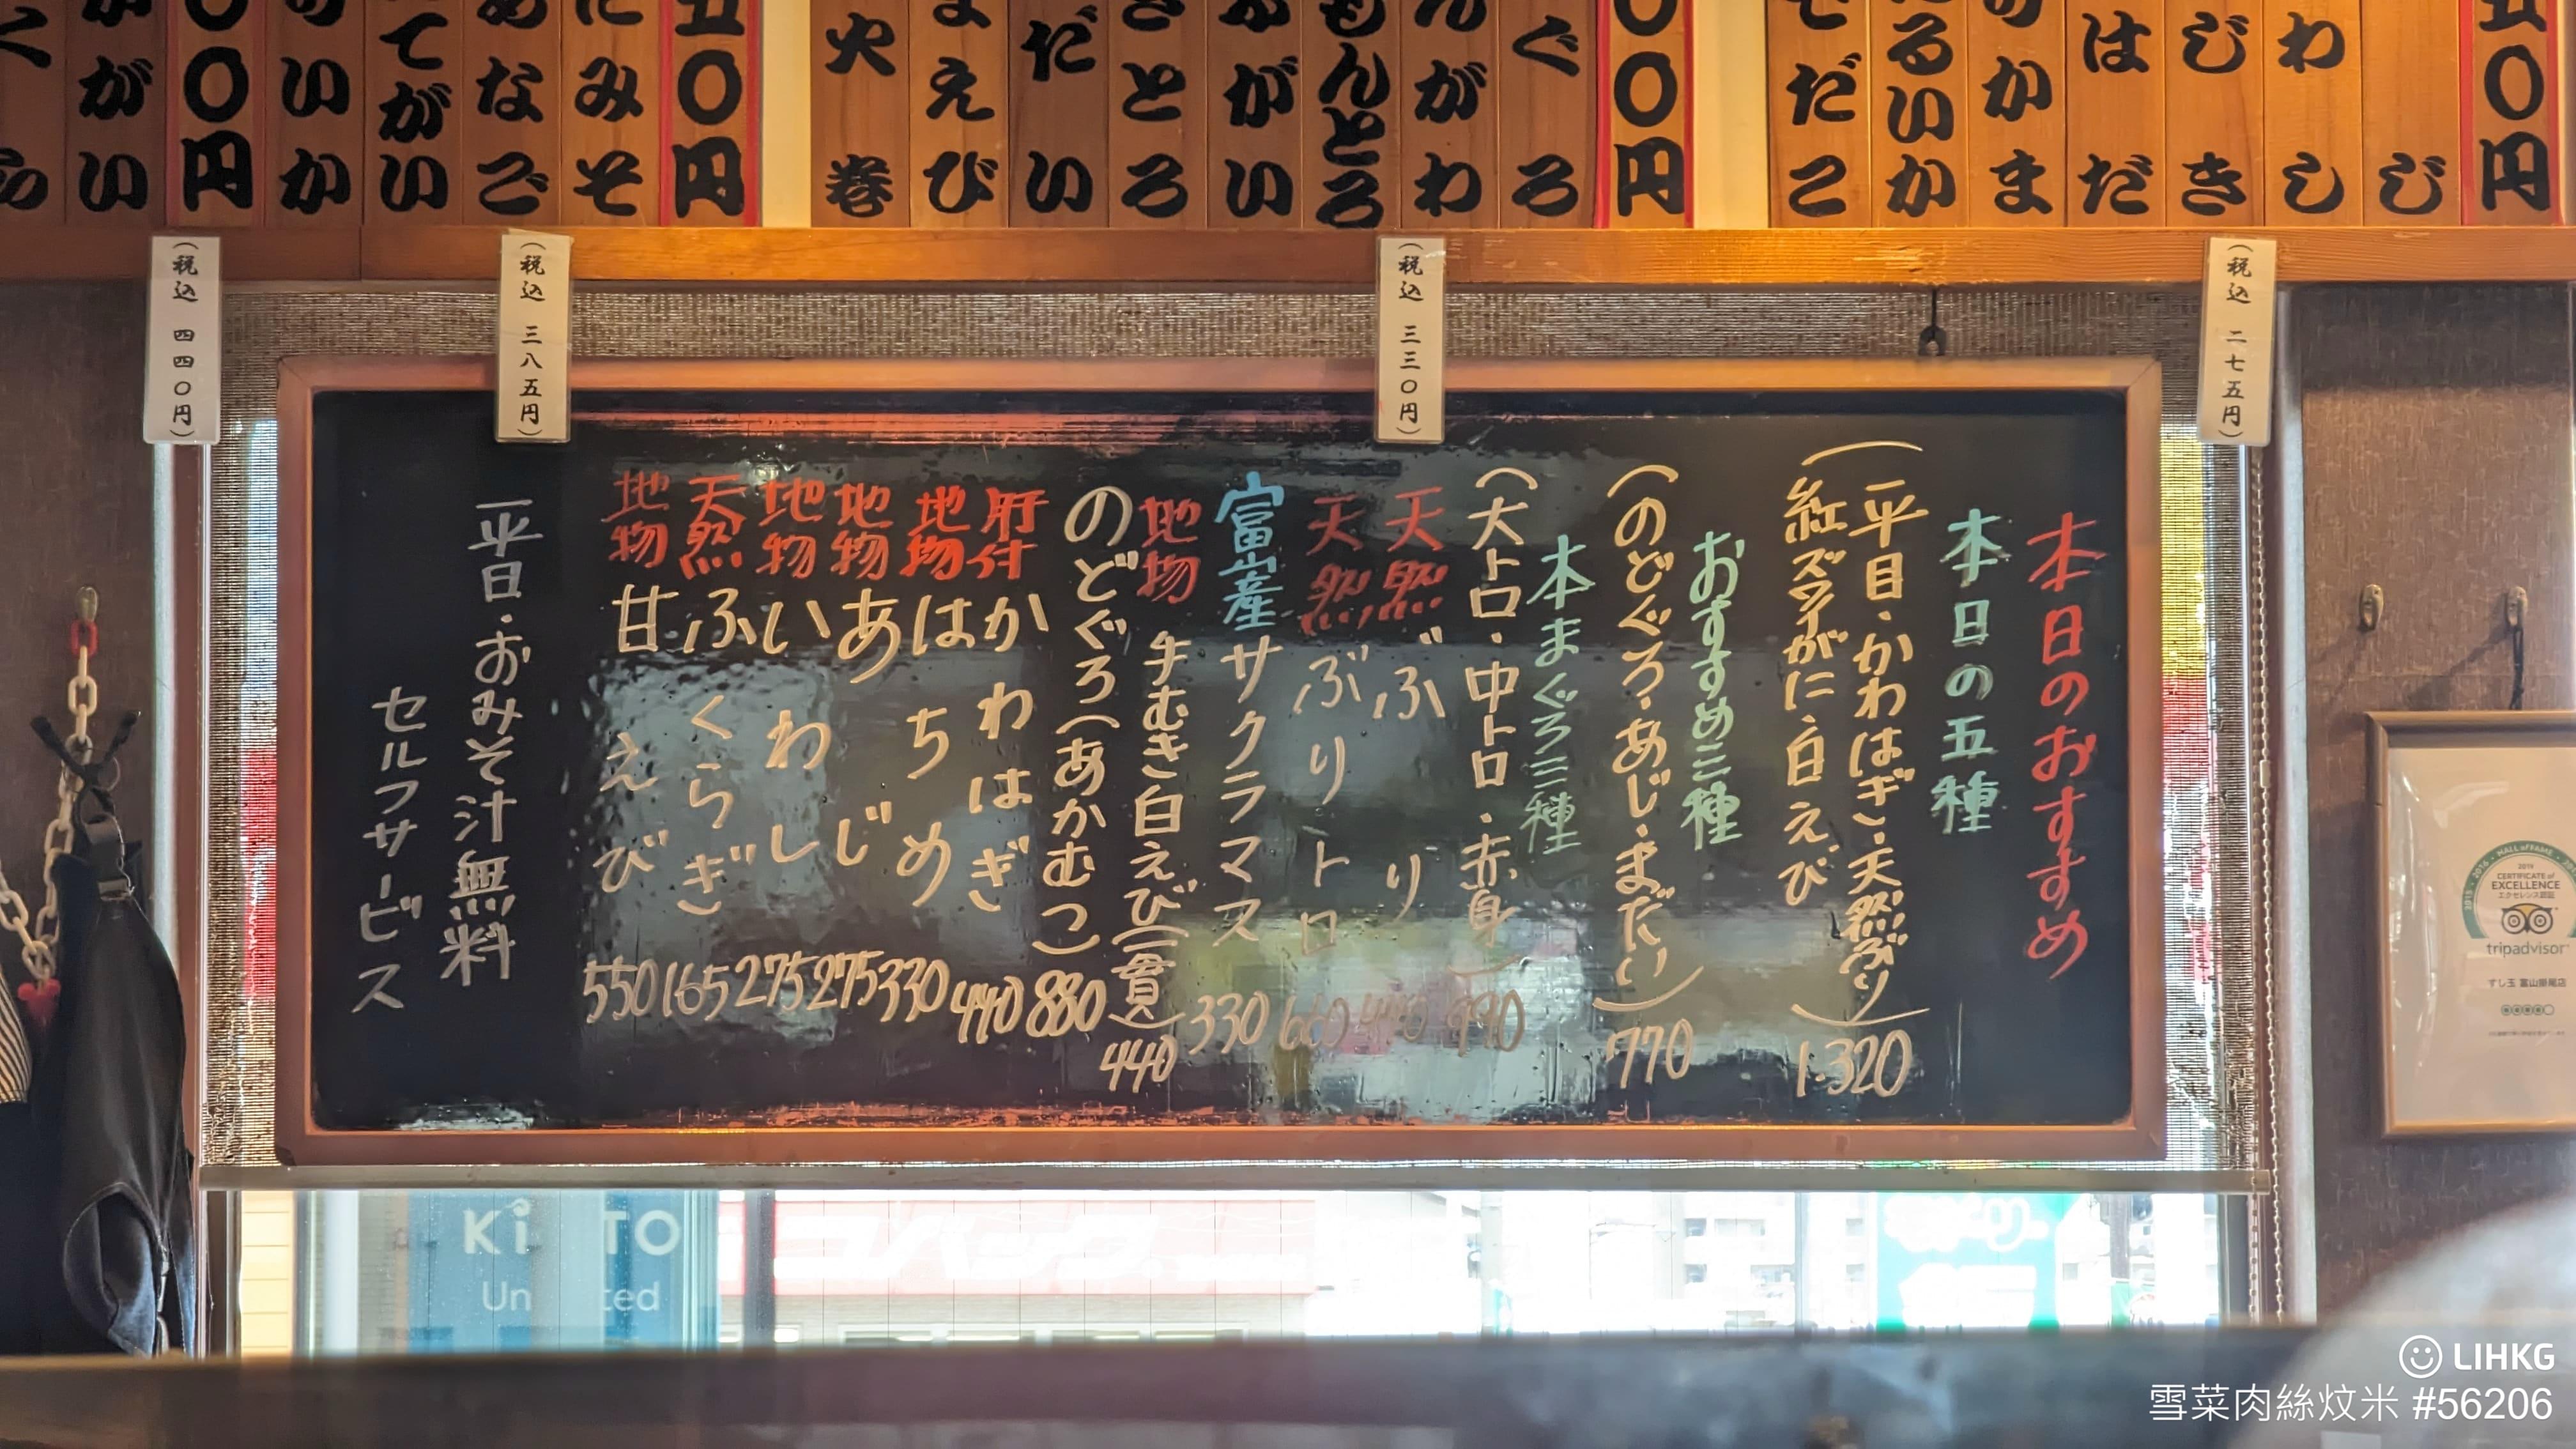 五〇円
じ
わし
じき
はだ
のかま
るいか
でだこ
〇〇円
ぐろ
んがわ
もんとろ
がい
きとろ
だい
まえび
火巻
五〇円
にみそ
あなご
てがい
りいか
〇〇円
がい
(税込 二七五円)
(税込 三三〇円)
(税込 三八五円)
(税込 四四〇円)
本日のおすすめ
本日の五種
(平目・かわはぎ・天然ぶり
紅ズワイがに・白えび) 1.320
おすすめ三種
(のどぐろ・あじ・まだい) 770
本まぐろ三種
(大トロ・中トロ・赤身) 990
天然 ぶり 440
天然 ぶりトロ 660
富山産 サクラマス 330
地物 手むき白えび(一貫) 440
のどぐろ(あかむつ) 880
肝付 かわはぎ 440
地物 はちめ 330
地物 あじ 275
地物 いわし 275
天然 ふくらぎ 165
地物 甘えび 550
平日・おみそ汁無料
セルフサービス
2019
CERTIFICATE of
EXCELLENCE
エクセレンス認証
tripadvisor
すし玉 富山掛尾店
Ki TO
Un ted
コバック
LIHKG
雪菜肉絲炆米 #56206